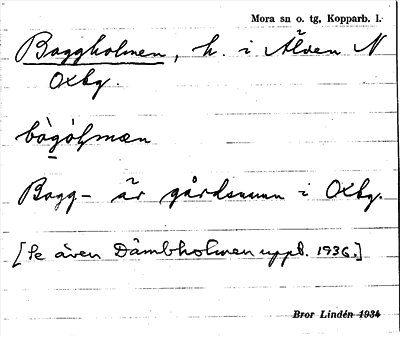 Mora sn o. tg, Kopparb. l.
Baggholmen, h. i Älven N
Oxbg.
bàgóļmæn
Bagg- är gårdsnamn i Oxbg.
[Se även Dämbholmen uppt. 1936.]
Bror Lindén 1934